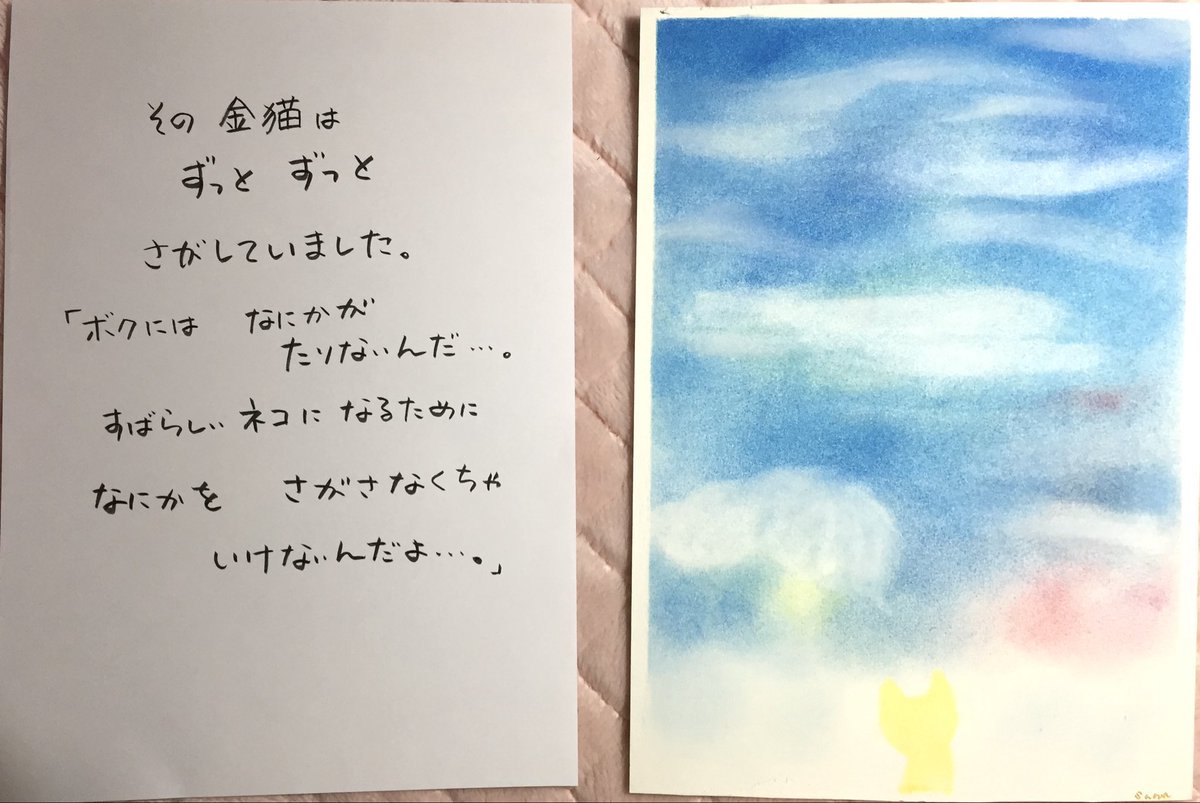 その 金猫は
ずっと ずっと
さがしていました。
「ボクには なにかが
たりないんだ…。
すばらしい ネコに なるために
なにかを さがさなくちゃ
いけないんだよ…。」